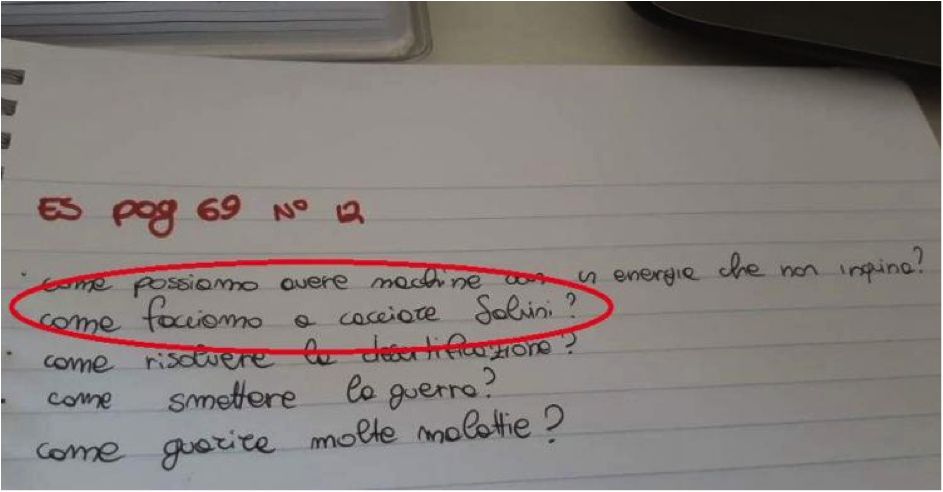 ES pag 69 N° 12
come possiamo avere macchine con un energia che non inquina?
come facciamo a cacciare Salvini?
come risolvere la desertificazione?
come smettere la guerra?
come guarire molte malattie?